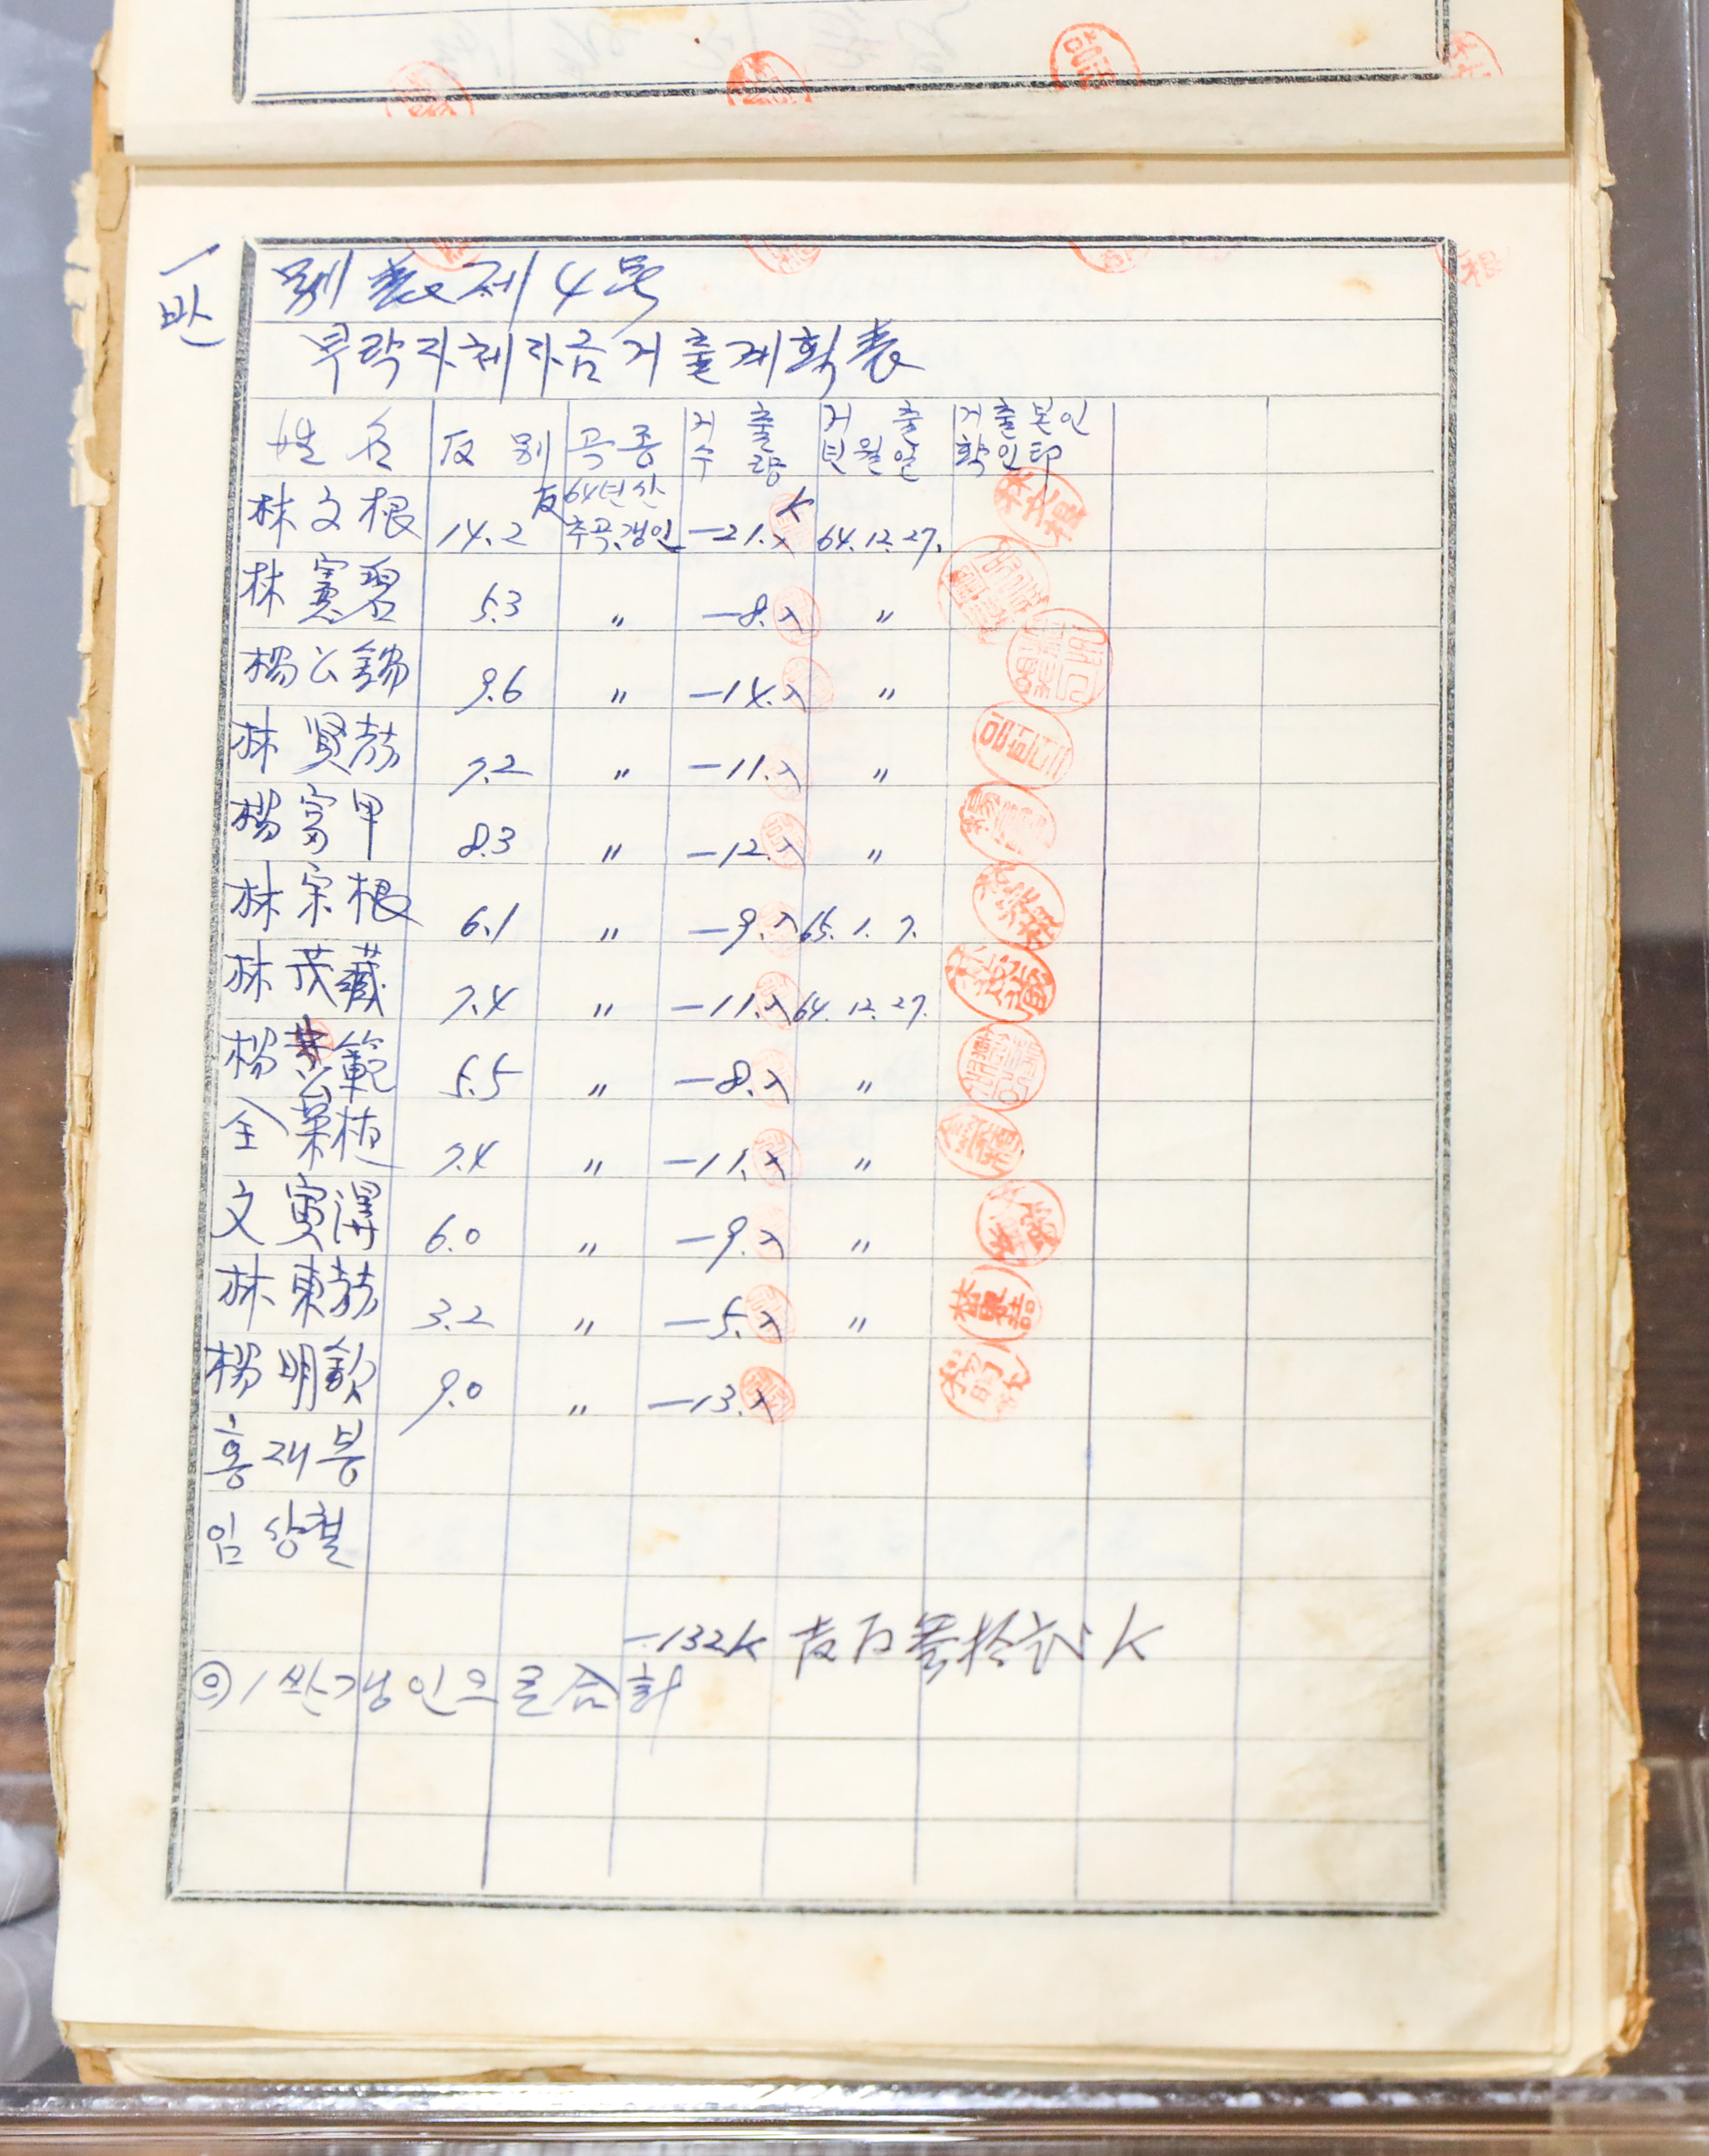 一반
別表제4号
부락자체자금거출계획表
姓名 反別 곡종 거출수량 거출년월일 거출본인확인印
林文根 14.2反 64년산추곡.갱인 -21.入K 64.12.27.
林憲碧 5.3 〃 -8.入 〃
楊公錫 9.6 〃 -14.入 〃
林賢喆 7.2 〃 -11.入 〃
楊富甲 8.3 〃 -12.入 〃
林宗根 6.1 〃 -9.入 65.1.7.
林茂藏 7.4 〃 -11.入 64.12.27.
楊公範 5.5 〃 -8.入 〃
全 7.4 〃 -11.入 〃
文寅澤 6.0 〃 -9.入 〃
林東喆 3.2 〃 -5.入 〃
楊明欽 9.0 〃 -13.入
홍재봉
임상철
-132K 百參拾 K
1 싼갱인으로合計